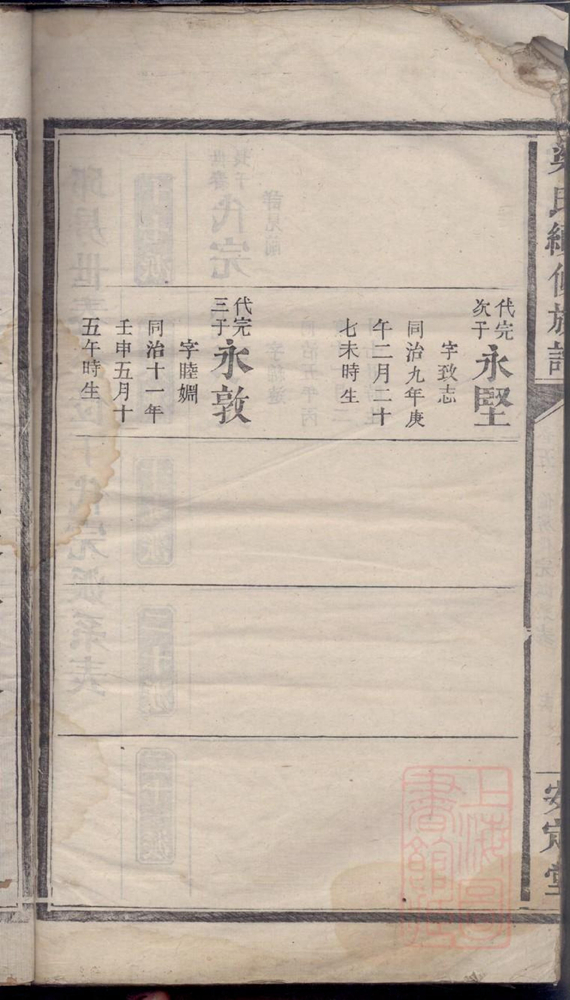 代完
次子
永堅
字致志
同治九年庚
午二月二十
七未時生
代完
三子
永敦
字睦婣
同治十一年
壬申五月十
五午時生
安定堂
上海圖
書館藏